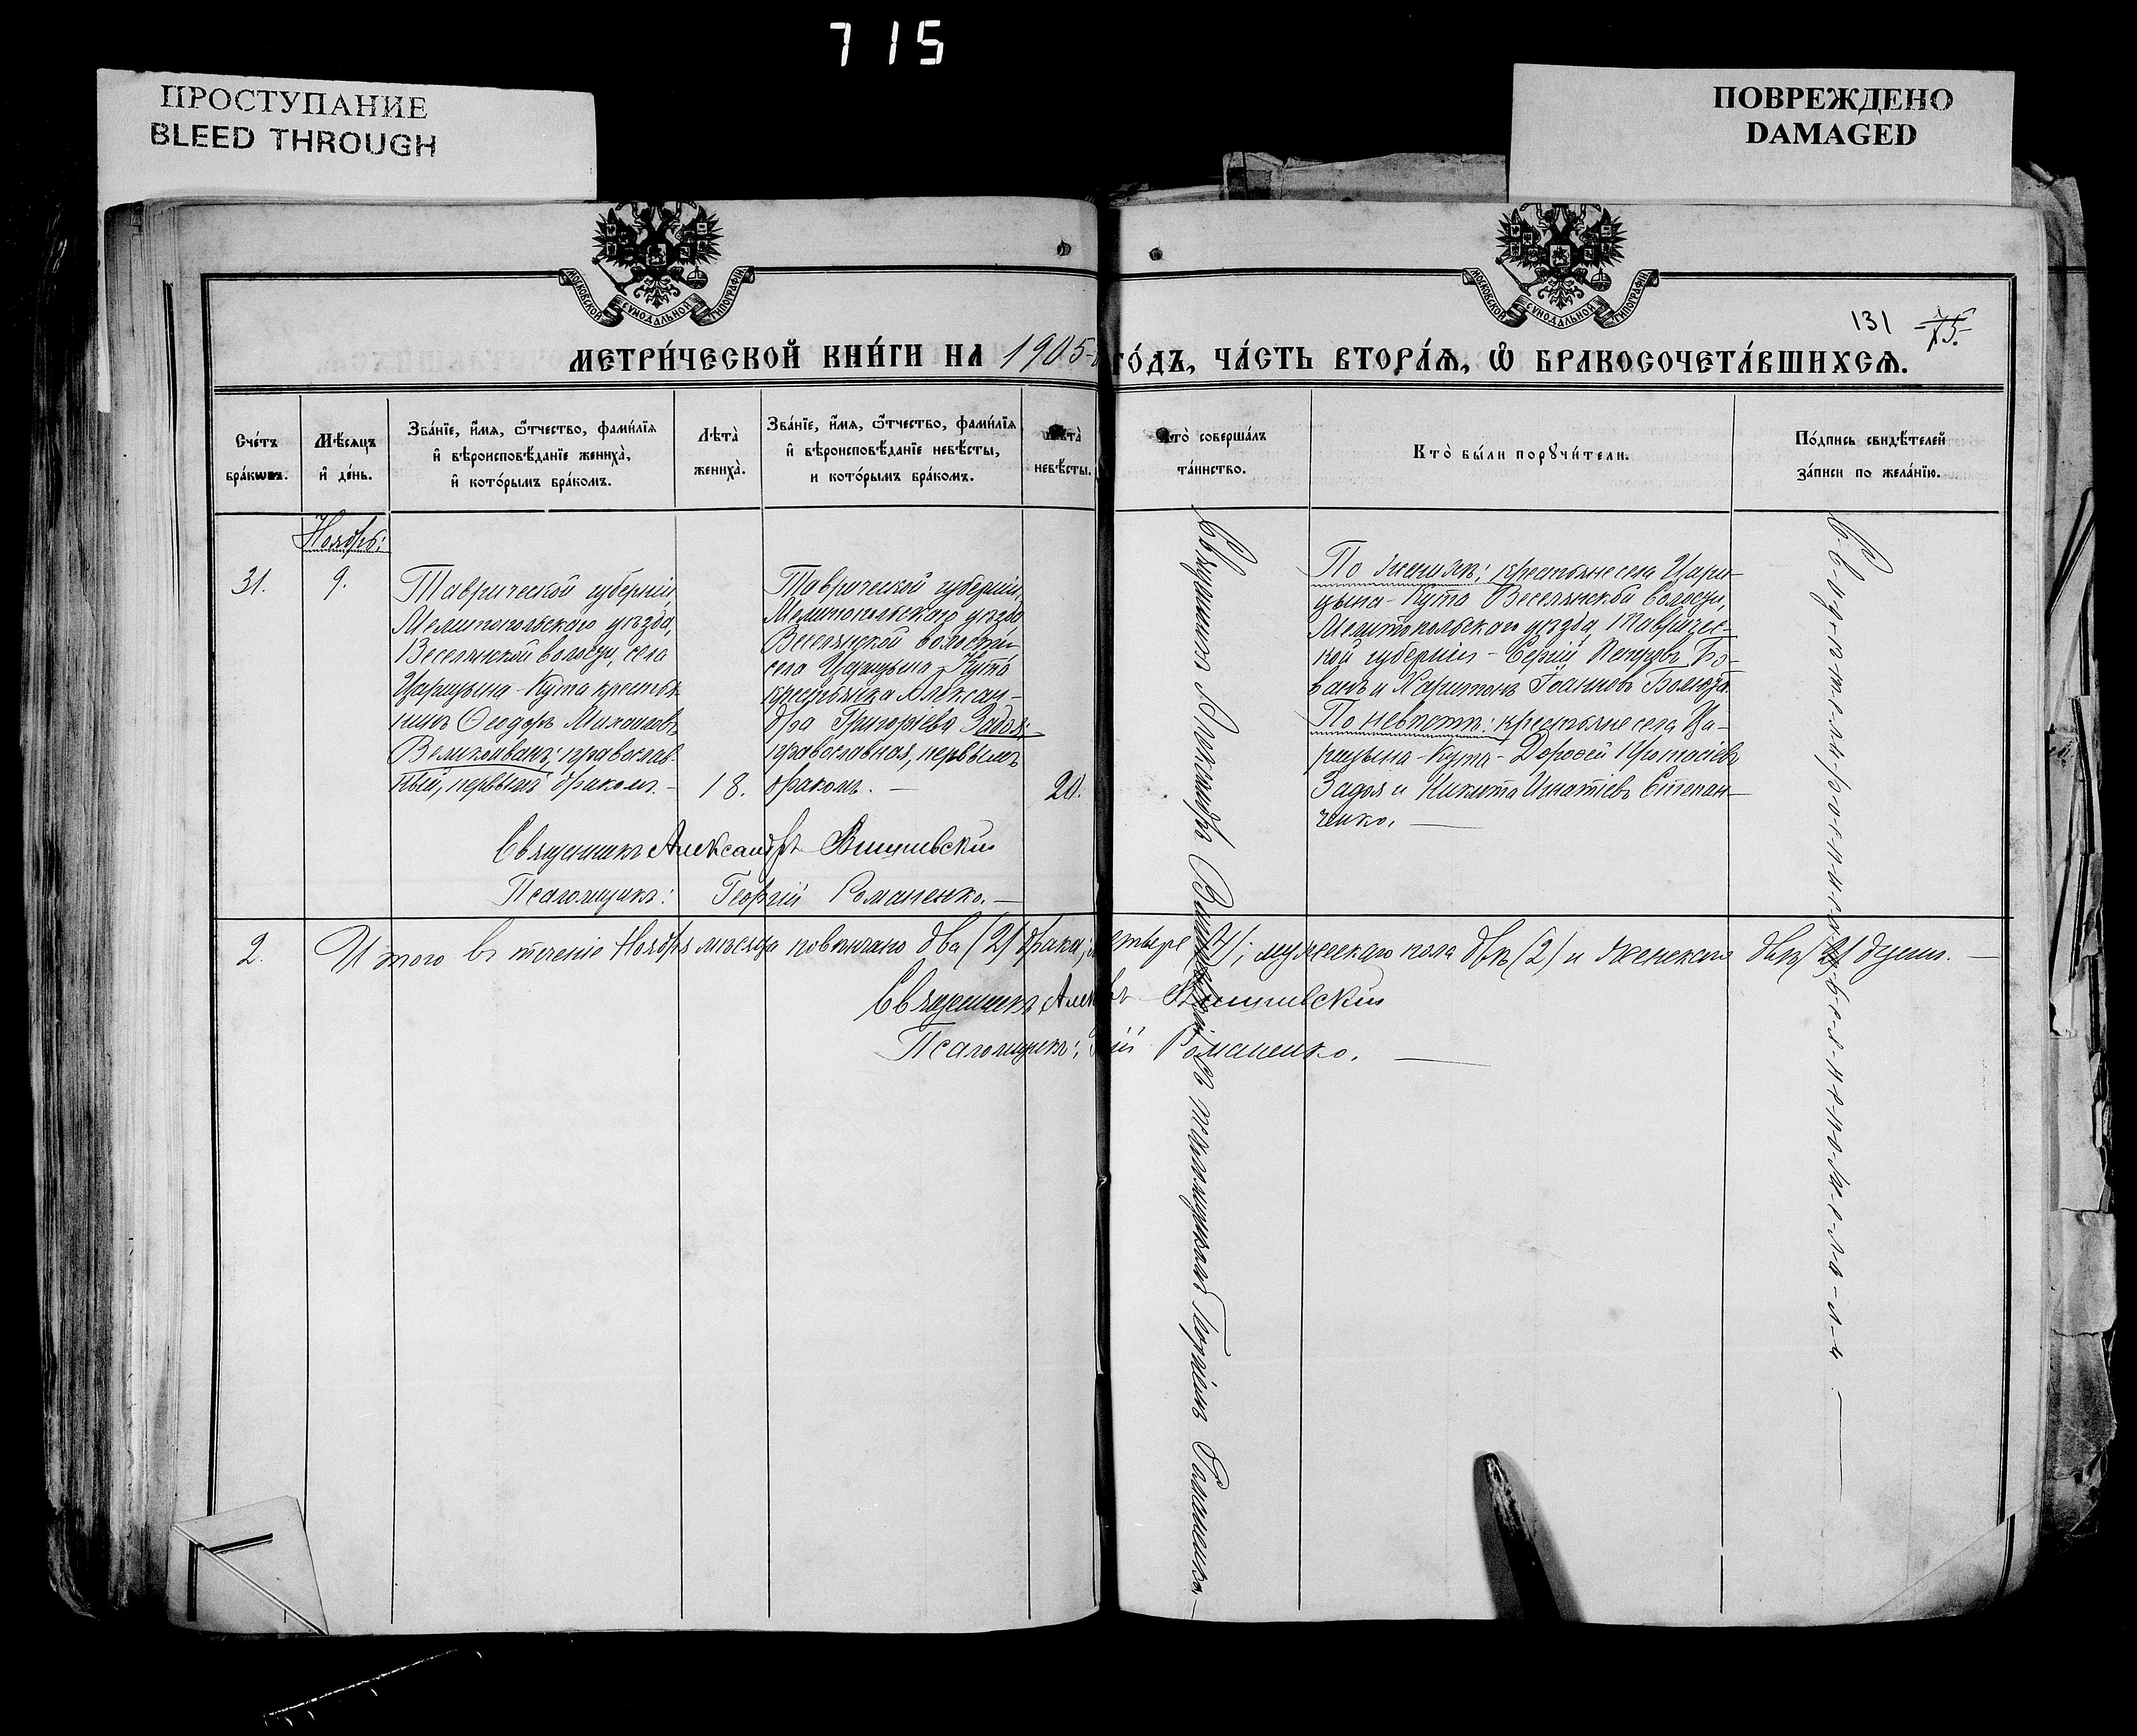 715
ПРОСТУПАНИЕ
BLEED THROUGH
ПОВРЕЖДЕНО
DAMAGED
МОСКОВСКОЙ СѴНОДАЛЬНОЙ ТИПОГРАФІИ
МОСКОВСКОЙ СѴНОДАЛЬНОЙ ТИПОГРАФІИ
131 75.
МЕТРИ́ЧЕСКОЙ КНИ́ГИ НА 1905-й
ГО́ДЪ, ЧА́СТЬ ВТОРА́Ѧ, Ѽ БРАКОСОЧЕТА́ВШИХСѦ.
Сче́тъ
бра́кѡвъ.
Мѣ́сяцъ
и҆ де́нь.
Зва́нїе, и҆́мѧ, ѻ҆́тчество, фами́лїѧ
и҆ вѣроисповѣ́данїе жениха̀,
и҆ кото́рымъ бра́комъ.
Лѣта̀
жениха̀.
Зва́нїе, и҆́мѧ, ѻ҆́тчество, фами́лїѧ
и҆ вѣроисповѣ́данїе невѣ́сты,
и кото́рымъ бра́комъ.
Лѣта̀
невѣ́сты.
Кто̀ соверша́лъ
та́инство.
Кто̀ бы́ли порꙋчи́тели.
По́дпись свидѣ́телей
за́писи по жела́нїю.
Ноябрь:
31.
9.
Таврической губерніи,
Мелитопольскаго уѣзда,
Веселянской волости, села
Царицына-Кута крестья-
нинъ Ѳеодоръ Михаиловъ
Великоиванъ; православ-
ный, первымъ бракомъ. -
18.
Таврической губерніи,
Мелитопольскаго уѣзда
Веселянской волости
села Царицына-Кута
крестьянка Алексан-
дра Григоріева Задоя;
православная, первымъ
бракомъ. -
20.
Священникомъ Александромъ Псаломщикомъ Георгіемъ Романенко. -
По женихѣ: крестьяне села Цари-
цына-Кута Веселянской волости,
Мелитопольскаго уѣзда, Тавричес-
кой губерніи - Сергій Петровъ
и Харитонъ Іоанновъ
По невѣстѣ: крестьяне села Ца-
рицына-Кута - Дороѳей
Задоя и Никита Игнатіевъ Степан-
ченко. -
Священникъ Александръ
Псаломщикъ: Георгій Романенко. -
2.
Итого въ теченіе Ноября мѣсяца повѣнчано два (2) брака; четыре (4); мужескаго пола двѣ (2) и женскаго двѣ (2) души. -
Священникъ
Псаломщикъ: Романенко. -